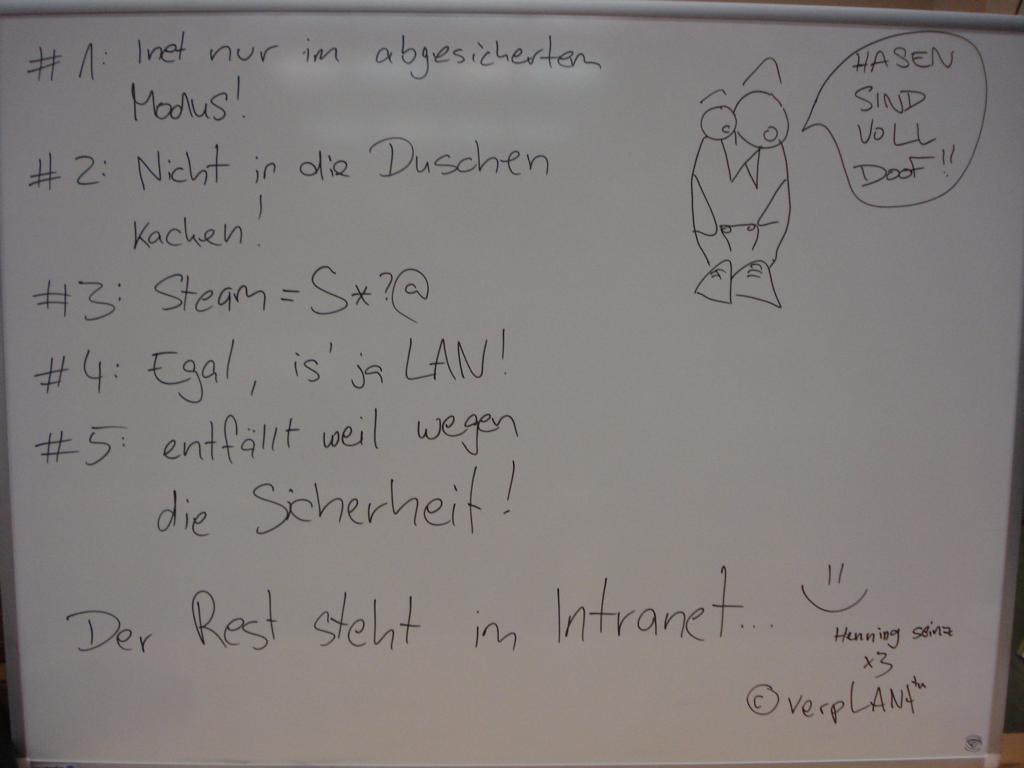 #1: Inet nur im abgesicherten
Modus!
#2: Nicht in die Duschen
kacken!
#3: Steam = S*?@
#4: Egal, is' ja LAN!
#5: entfällt weil wegen
die Sicherheit!
Der Rest steht im Intranet...
HASEN
SIND
VOLL
DOOF!!
Henning seinz
x3
© verpLANt™